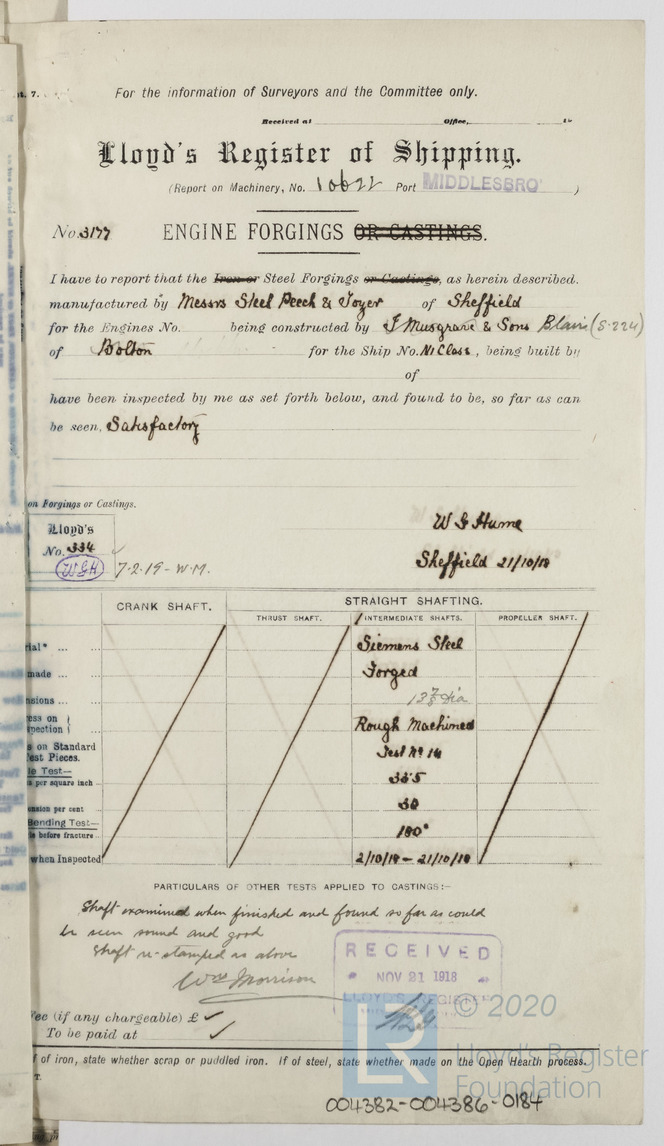 For the information of Surveyors and the Committee only.
Received at Office, 19
Lloyd's Register of Shipping.
(Report on Machinery, No. 10622 Port MIDDLESBRO' )
No. 3177 ENGINE FORGINGS OR CASTINGS.
I have to report that the Iron or Steel Forgings or Castings, as herein described.
manufactured by Messrs Steel Peech & Tozer of Sheffield
for the Engines No. being constructed by J Musgrave & Sons Blair (S.224)
of Bolton for the Ship No. N1 Class, being built by
of
have been inspected by me as set forth below, and found to be, so far as can
be seen, Satisfactory
on Forgings or Castings.
Lloyd's
No. 334
WGH 7.2.19 - W.M.
W G Hume
Sheffield 21/10/18
CRANK SHAFT. STRAIGHT SHAFTING.
THRUST SHAFT. 1 INTERMEDIATE SHAFTS. PROPELLER SHAFT.
rial* ... ... Siemens Steel
made ... ... Forged
nsions ... ... 13⅞ Dia
ess on
spection Rough Machined
s on Standard
Test Pieces. Test No 14
le Test—
s per square inch 33.5
nsion per cent 30
Bending Test—
le before fracture 180°
when Inspected 2/10/18 - 21/10/18
PARTICULARS OF OTHER TESTS APPLIED TO CASTINGS:—
Shaft examined when finished and found so far as could
be seen sound and good
Shaft re-stamped as above
Wm Morrison
RECEIVED
NOV 21 1918
LLOYD'S REGISTER
Fee (if any chargeable) £
To be paid at
f of iron, state whether scrap or puddled iron. If of steel, state whether made on the Open Hearth process.
T.
© 2020
LR
Lloyd's Register
Foundation
004382-004386-0184